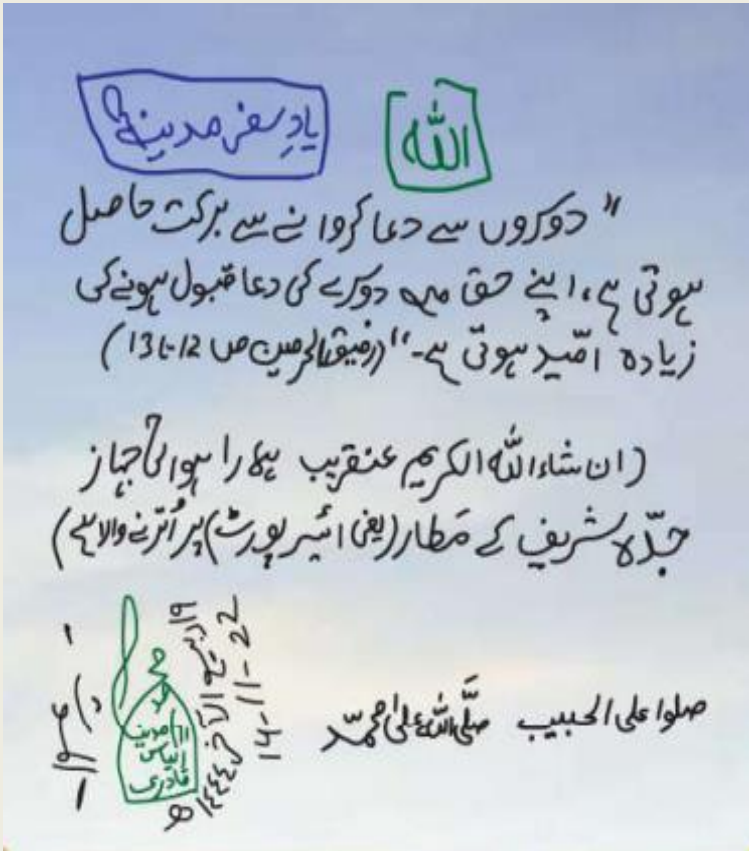 اللہ
یادِ سفرِ مدینہ
"دوسروں سے دعا کروانے سے برکت حاصل
ہوتی ہے، اپنے حق میں دوسرے کی دعا قبول ہونے کی
زیادہ امّید ہوتی ہے۔" (رفیق الحرمین ص 12 تا 13)
(ان شاء اللہ الکریم عنقریب ہمارا ہوائی جہاز
جدّہ شریف کے مَطار (یعنی ائیر پورٹ) پر اُترنے والا ہے)
صلوا علی الحبیب صلَّی اللہ علیٰ محمّد
۱۹ ربیع الآخر ۱۴۴۴ھ
14-11-22
محمد
الیاس
قادری